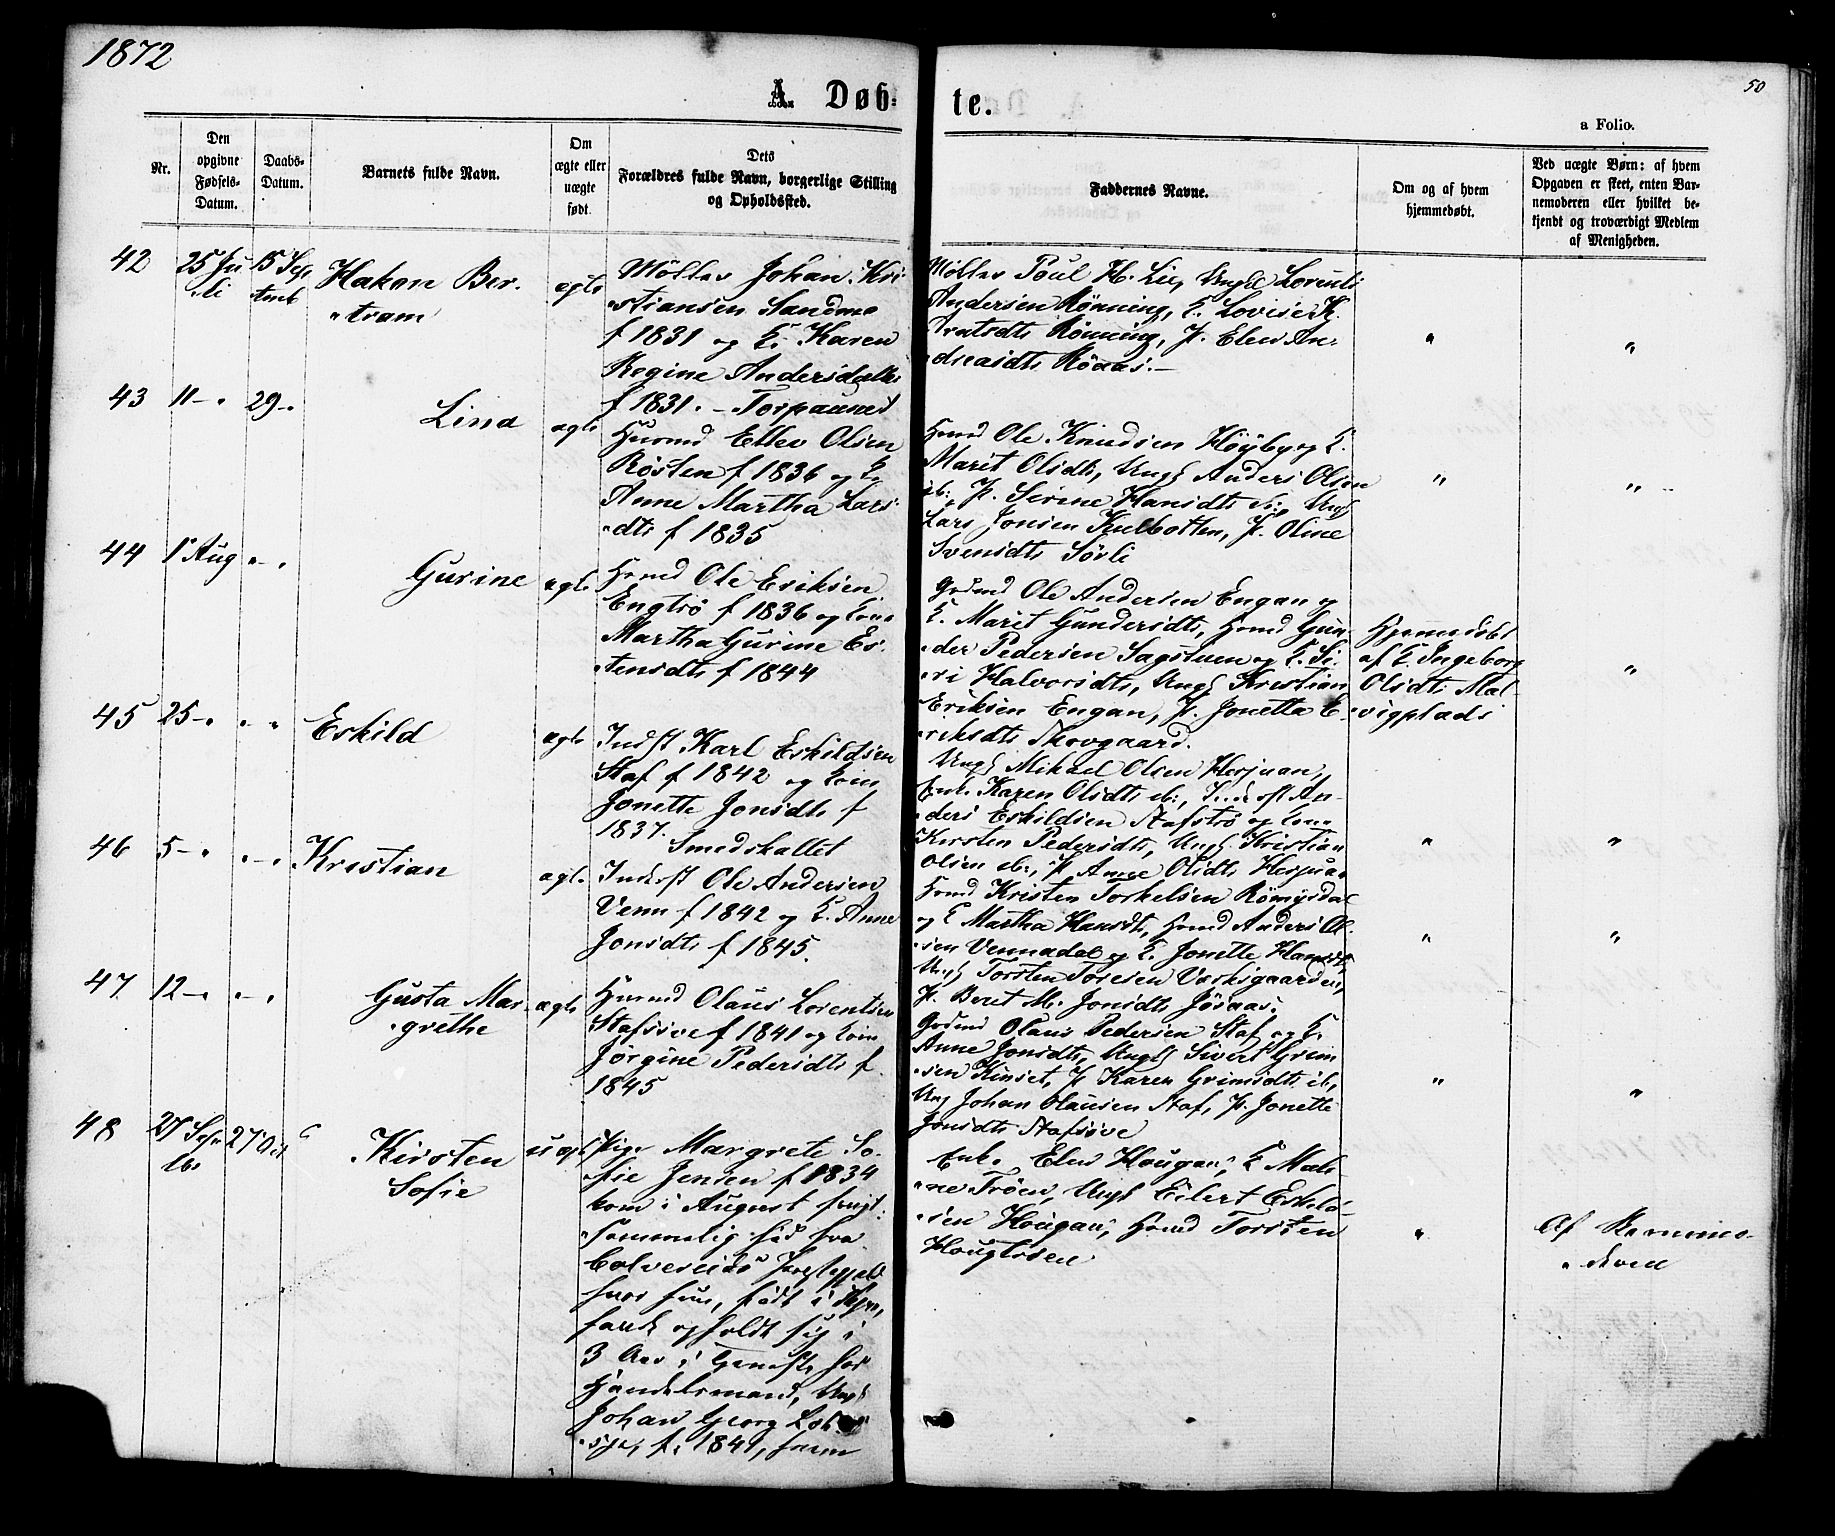 1872
50
A. Døb-
te.
a Folio.
Nr.
Den opgivne Fødsels-Datum.
Daabs-Datum.
Barnets fulde Navn.
Om ægte eller uægte født.
Dets Forældres fulde Navn, borgerlige Stilling og Opholdssted.
Faddernes Navne.
Om og af hvem hjemmedøbt.
Ved uægte Børn: af hvem Opgaven er skeet, enten Barnemoderen eller hvilket bekjendt og troværdigt Medlem af Menigheden.
42
25 Ju
li
15 Sep
temb
Hakon Ber-
tram
ægte
Møller Johan Kri
stiansen Sandmo
f 1831 og K. Karen
Regine Andersdatter
f 1831. -
Møller Poul H. Lie, Ungk Lorents
Andersen Rönning, K. Lovise K.
Rönning, P. Elen An-
dreasdt Röaas. -
"
"
43
11 - "
29 - "
Lina
ægte
Husmd Ellev Olsen
Rösten f 1836 og K
Anne Martha Lars
dtr f 1835
Hmd Ole Knudsen Höiby og K.
Marit Olsdtr, Ungk Anders Olsen
ib:, P. Serine Hansdtr ib:, Ungk
Lars Jonsen Kulbotten, P. Oline
Svensdtr Sörli
"
"
44
1 Aug
" - "
Gurine
ægte
Hsmd Ole Eriksen
Engtrö f 1836 og Kone
Martha Gurine Es-
tensdtr f 1844
Grdmd Ole Andersen Engan og
K. Marit Gundersdtr, Hsmd Gun-
der Pedersen Sagstuen og K. Si-
ri Halvorsdtr, Ungk Kristian
Eriksen Engan, P. Jonetta E-
riksdtr Skovgaard.
Hjemmedöbt
af K. Ingeborg
Olsdtr Mal-
vigplads
"
45
25 - "
" "
Eskild
ægte
Indst Karl Eskildsen
Staf f 1842 og Kone
Jonette Jonsdtr f
1837. Smedskallet
Ungk Mikael Olsen Hesjuan,
Enke Karen Olsdtr ib:, An-
ders Eskildsen Stafströ og Kone
Kirsten Pedersdtr, Ungk Kristian
Olsen ib:, P. Anne Olsdtr Hesjuan
"
"
46
5 - "
" - "
Kristian
ægte
Inderst Ole Andersen
Venn f 1842 og K. Anne
Jonsdtr f 1845.
Hsmd Kristen Torkelsen Römysdal
og K Martha Hansdtr, Hsmd Anders Ol-
sen Vennadal og K. Jonette Hansdtr,
Ungk Torsten Toresen
P. Beret M. Jonsdtr Jösaas.
"
"
47
12 - "
" - "
Gusta Mar-
grethe
ægte
Husmd Olaus Lorentsen
Stafsive f 1841 og Kone
Jörgine Pedersdtr f.
1845
Grdmd Olaus Pedersen Staf og K.
Anne Jonsdtr, Ungk Sivert Grim
sen Kinset, P Karen Grimsdtr ib,
Ungk Johan Olausen Staf, P. Jonette
Jonsdtr Stafsöve
"
"
48
27 Sep
tbr
27 Oct
Kirsten
Sofie
uægte
Pige Margrete So-
fie Jensen f 1834
kom i August frugt-
sommelig hid fra
Kolvereids Præstegjeld
hvor hun, født i
opholdt sig i
3 Aar i Tjeneste hos
Handelsmand, Ungk
Johan Georg
f. 1841,
Enke Elen Hougan, K Mali-
ne Tröen, Ungk Eilert Eskild-
sen Hougan, Hsmd Torsten
Hougtröen
"
Af Barnemo-
deren